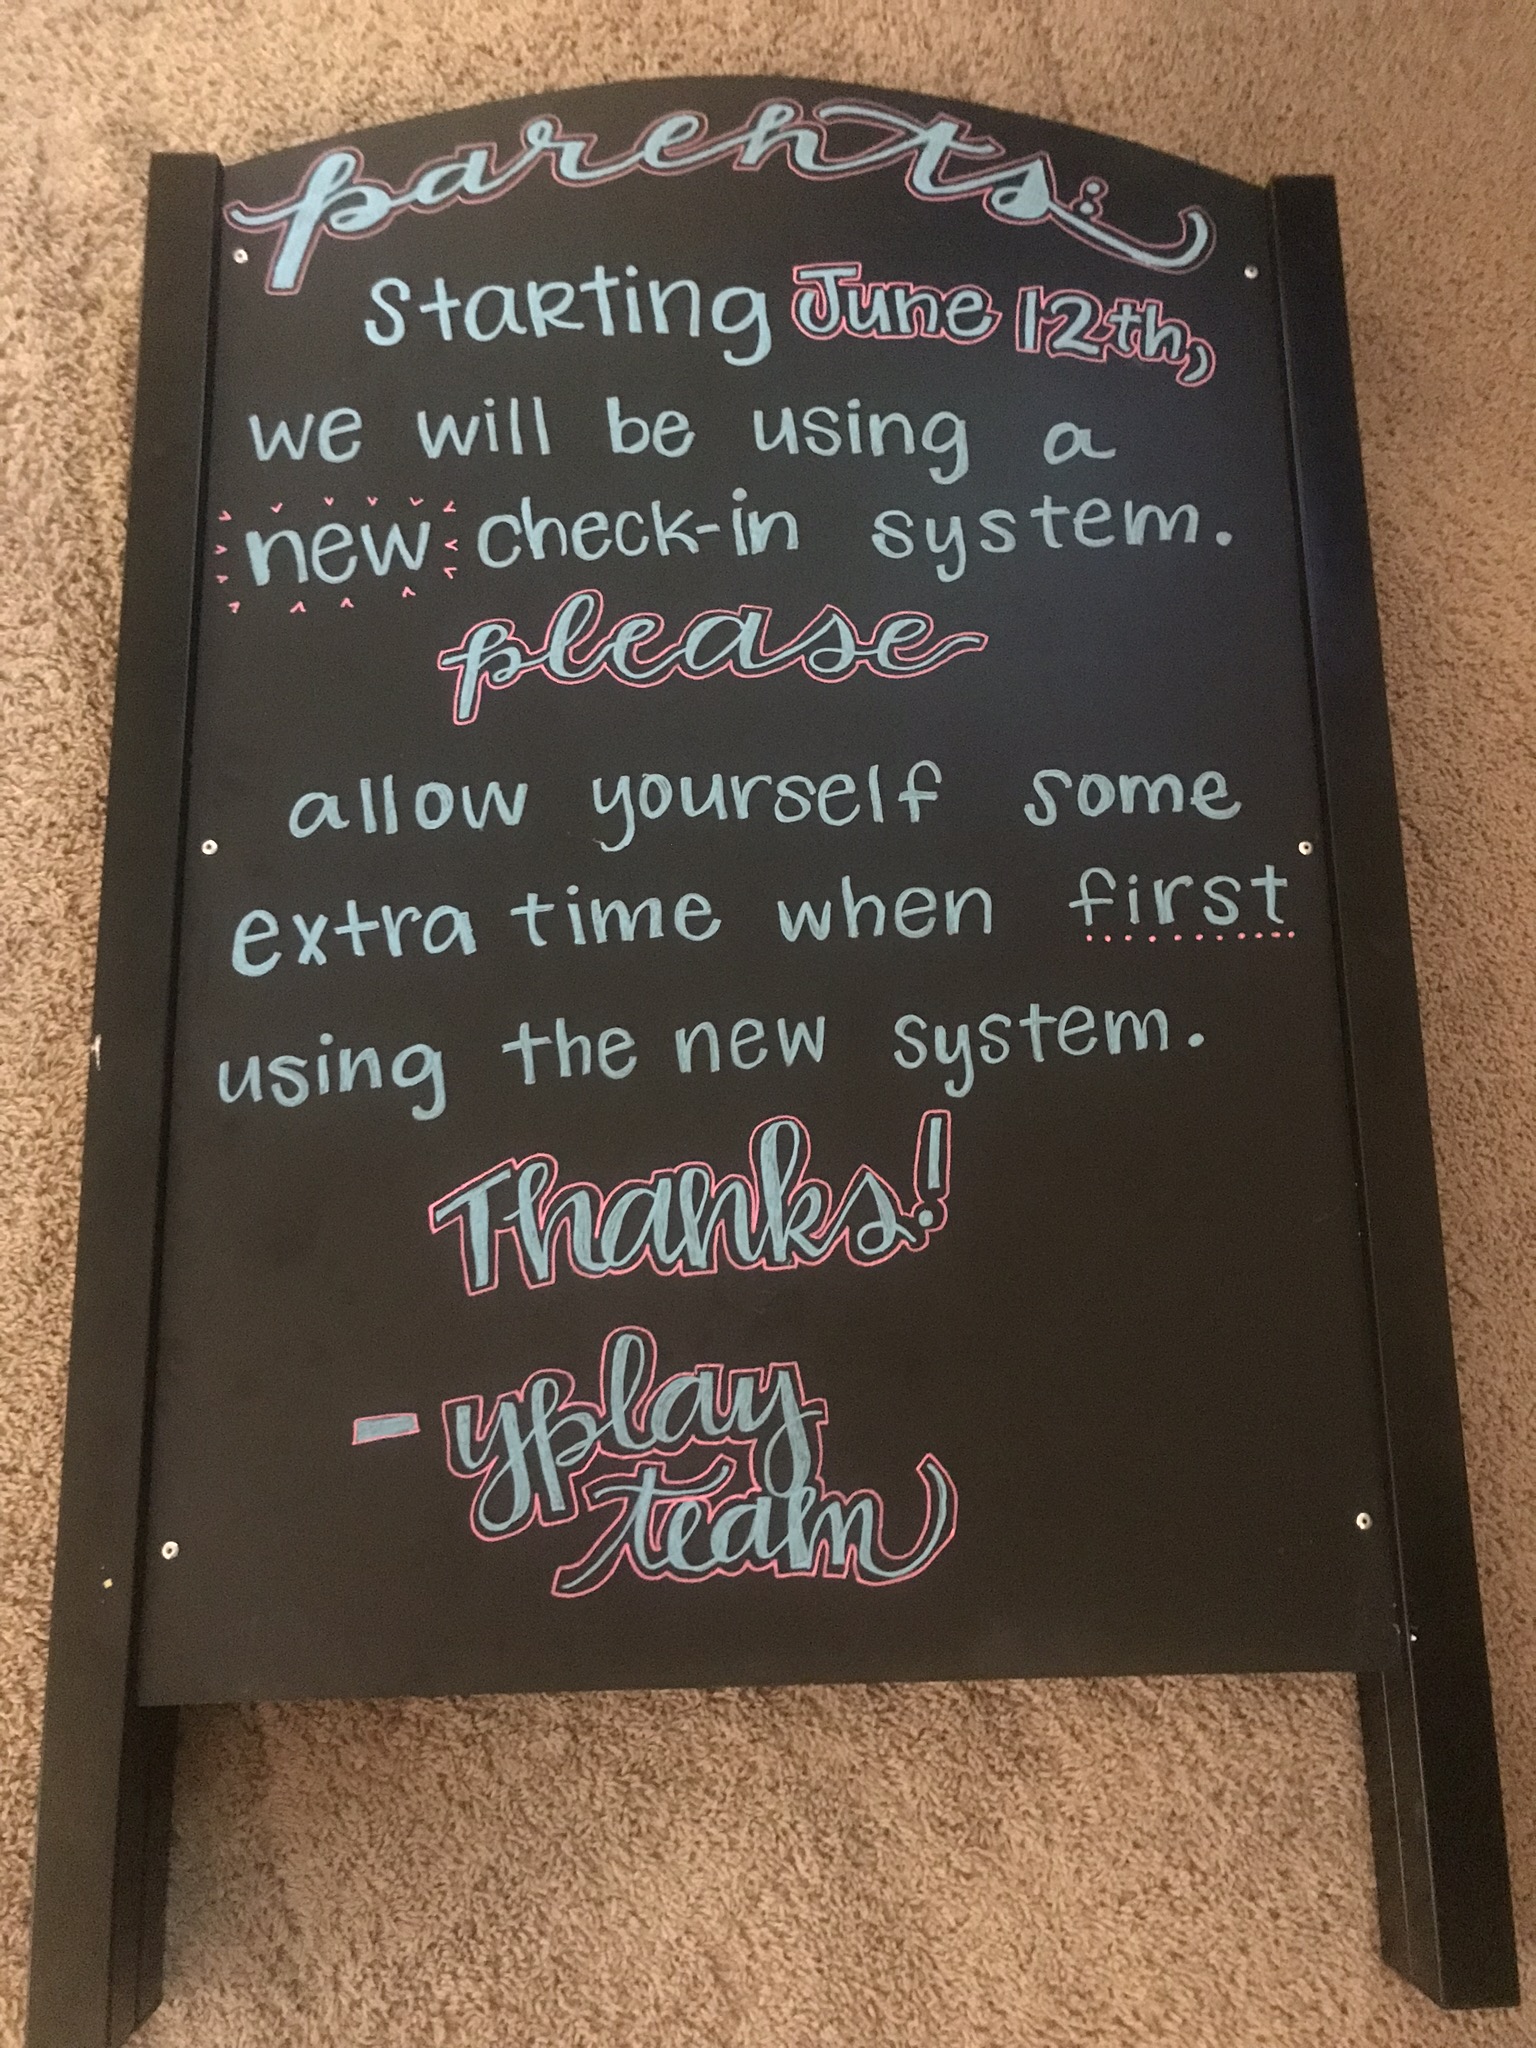 parents:
starting June 12th,
we will be using a
new check-in system.
please
allow yourself some
extra time when first
using the new system.
Thanks!
- yplay
team